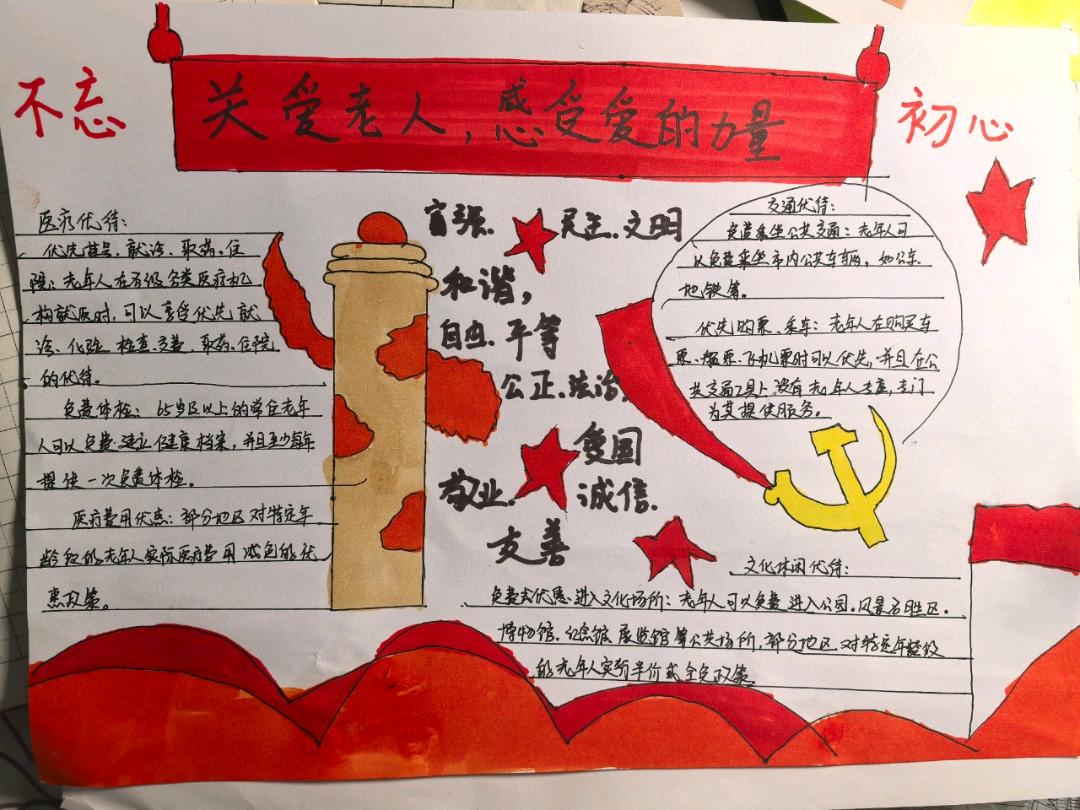 不忘
关爱老人,感受爱的力量
初心
医疗优待:
优先挂号、就诊、取药、住
院:老年人在各级各类医疗机
构就医时,可以享受优先就
诊、化验、检查、交费、取药、住院
的优待。
免费体检:65岁及以上的常住老年
人可以免费建立健康档案,并且至少每年
提供一次免费体检。
医疗费用优惠:部分地区对特定年
龄段的老年人实际医疗费用减免的优
惠政策。
富强、民主、文明
和谐,
自由、平等
公正、法治,
爱国
敬业、诚信.
友善
交通优待:
免费乘坐公共交通:老年人可
以免费乘坐市内公共车辆,如公车
地铁等。
优先购票、乘车:老年人在购买车
票、船票、飞机票时可以优先,并且在公
共交通工具上设有老年人专座,专门
为其提供服务。
文化休闲优待:
免费或优惠进入文化场所:老年人可以免费进入公园、风景名胜区、
博物馆、纪念馆、展览馆等公共场所,部分地区对特定年龄段
的老年人实施半价或全免政策